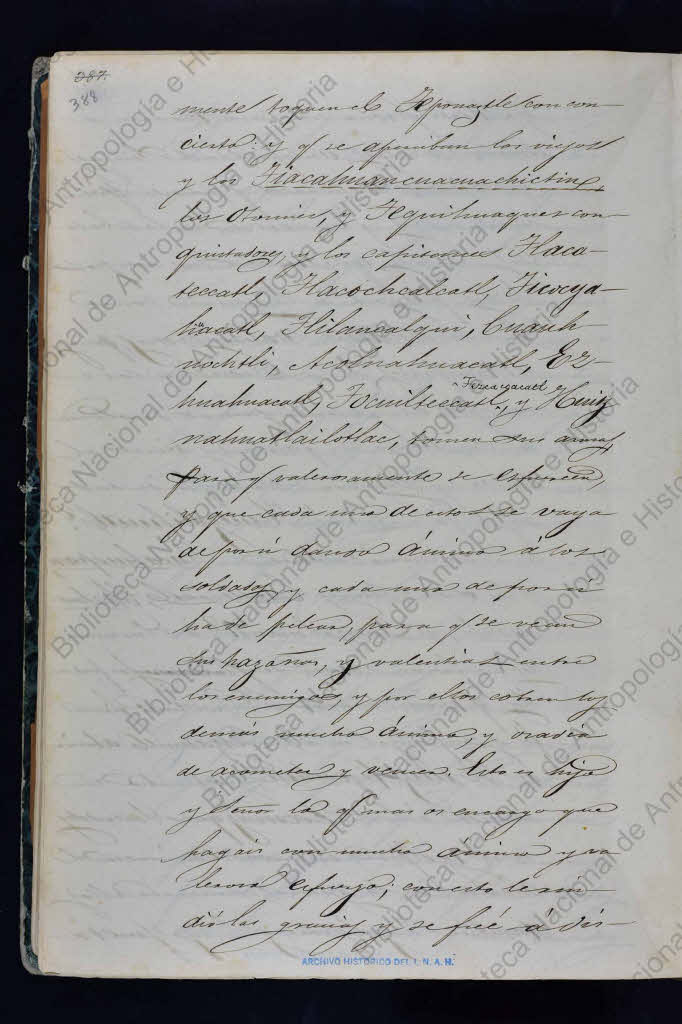 387.
388
mente toquen el Teponaztle con con-
cierto: y q̃ se aperciban los viejos
y los Tiacahuancuacuachictin,
los Otomies, y Tequihuaques con-
quistadores, y los capitanes Tlaca-
teccatl, Tlacochcalcatl, Ticocya-
huacatl, Hilancalqui, Cuauh-
nochtli, Acolnahuacatl, Ez-
huahuacatl, Tocuilteccatl, Tezcacoacatl y Huitz
nahuatlailotlac, tomen sus armas,
para q̃ valerosamente se esfuercen,
y que cada uno de estos se vaya
de por sí dando ánimo á los
soldados, y cada uno de por sí
ha de pelear, para q̃ se vean
sus hazañas, y valentias entre
los enemigos, y por ellos cobren los
demás mucho ánimo, y osadia
de acometer y vencer. Esto es hijo
y Señor lo q̃ mas os encargo que
hagais con mucho ánimo y va
leroso esfuerzo; con esto le rin-
dió las gracias y se fué á des-
ARCHIVO HISTORICO DEL I. N. A. H.
Biblioteca Nacional de Antropología e Historia